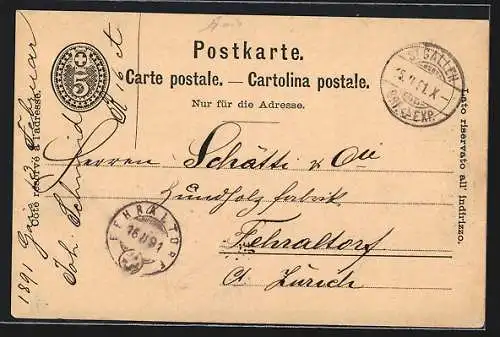 Postkarte.
Carte postale. — Cartolina postale.
Nur für die Adresse.
5
ST. GALLEN
BRF. EXP.
Côté réservé à l'adresse.
Lato riservato all' indirizzo.
Herren Schätti & Cie
Zündholzfabrik
Fehraltorf
Ct. Zürich
FEHRALTORF
16 II 91
1891 13 Februar
Joh Schmid
16 ct